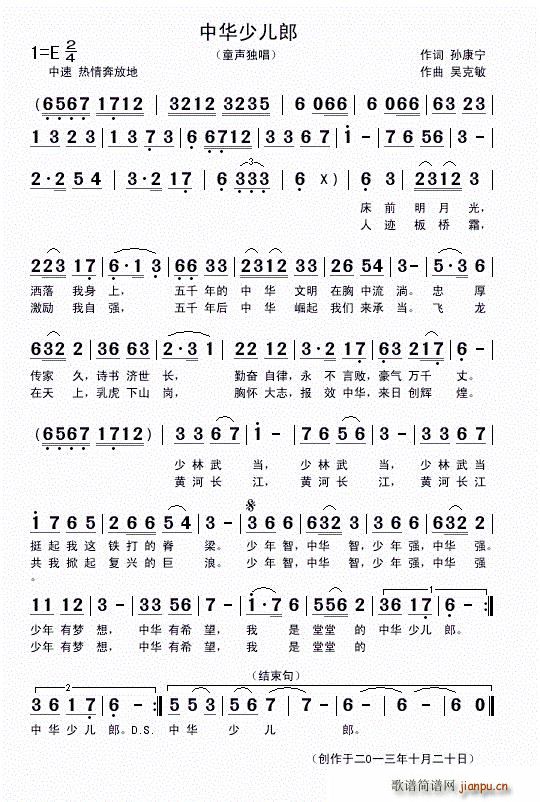 中华少儿郎
1=E 2/4
（童声独唱）
作词 孙康宁
中速 热情奔放地
作曲 吴克敏
(6567 1712 | 3212 3235 | 6 066 | 6 066 | 63 23 |
1 3 2 3 | 1 3 7 3 | 6 6712 | 3 3 6 7 | i - | 7 6 56 | 3 - |
2·2 5 4 | 3·2 1 7 | 6 333 | 6 X) | 6 3 | 2312 3 |
床 前 明 月 光，
人 迹 板 桥 霜，
223 17 | 6·1 3 | 66 33 | 2312 33 | 26 54 | 3- | 5·3 6 |
洒落 我身 上， 五千 年的 中 华 文明 在胸 中流 淌。 忠 厚
激励 我自 强， 五千 年后 中华 崛起 我们 来承 当。 飞 龙
632 2 | 36 63 | 2·3 1 | 22 12 | 3 3 67 | 63 217 | 6 - |
传家 久，诗书 济世 长， 勤奋 自律，永 不 言败，豪气 万千 丈。
在天 上，乳虎 下山 岗， 胸怀 大志，报 效 中华，来日 创辉 煌。
(6567 1712) | 3 3 6 7 | i - | 7 6 5 6 | 3 3 6 7 |
少 林 武 当， 少 林 武 当， 少 林 武 当
黄 河 长 江， 黄 河 长 江， 黄 河 长 江
i 7 6 5 | 2 6 6 5 4 | 3 - | 3 6 6 | 632 3 | 3 6 6 | 632 2 |
挺 起 我 这 铁 打 的 脊 梁。 少 年 智，中华 智，少 年 强，中华 强。
共 我 掀 起 复 兴 的 巨 浪。 少 年 智，中华 智，少 年 强，中华 强
。
11 12 | 3 - | 33 56 | 7 - | i·7 6 | 556 2 | 36 17 | 6 - :||
少年 有梦 想， 中华 有希 望， 我 是 堂堂 的 中华 少儿 郎。
少年 有梦 想， 中华 有希 望， 我 是 堂堂 的
（结束句）
3 6 1 7 | 6 - :|| 5 5 3 | 5 5 7 | 6 - | 6 - | 6 0 ||
中 华 少 儿 郎。D.S. 中 华 少 儿 郎。
（创作于二0一三年十月二十日）
歌谱简谱网
jianpu.cn